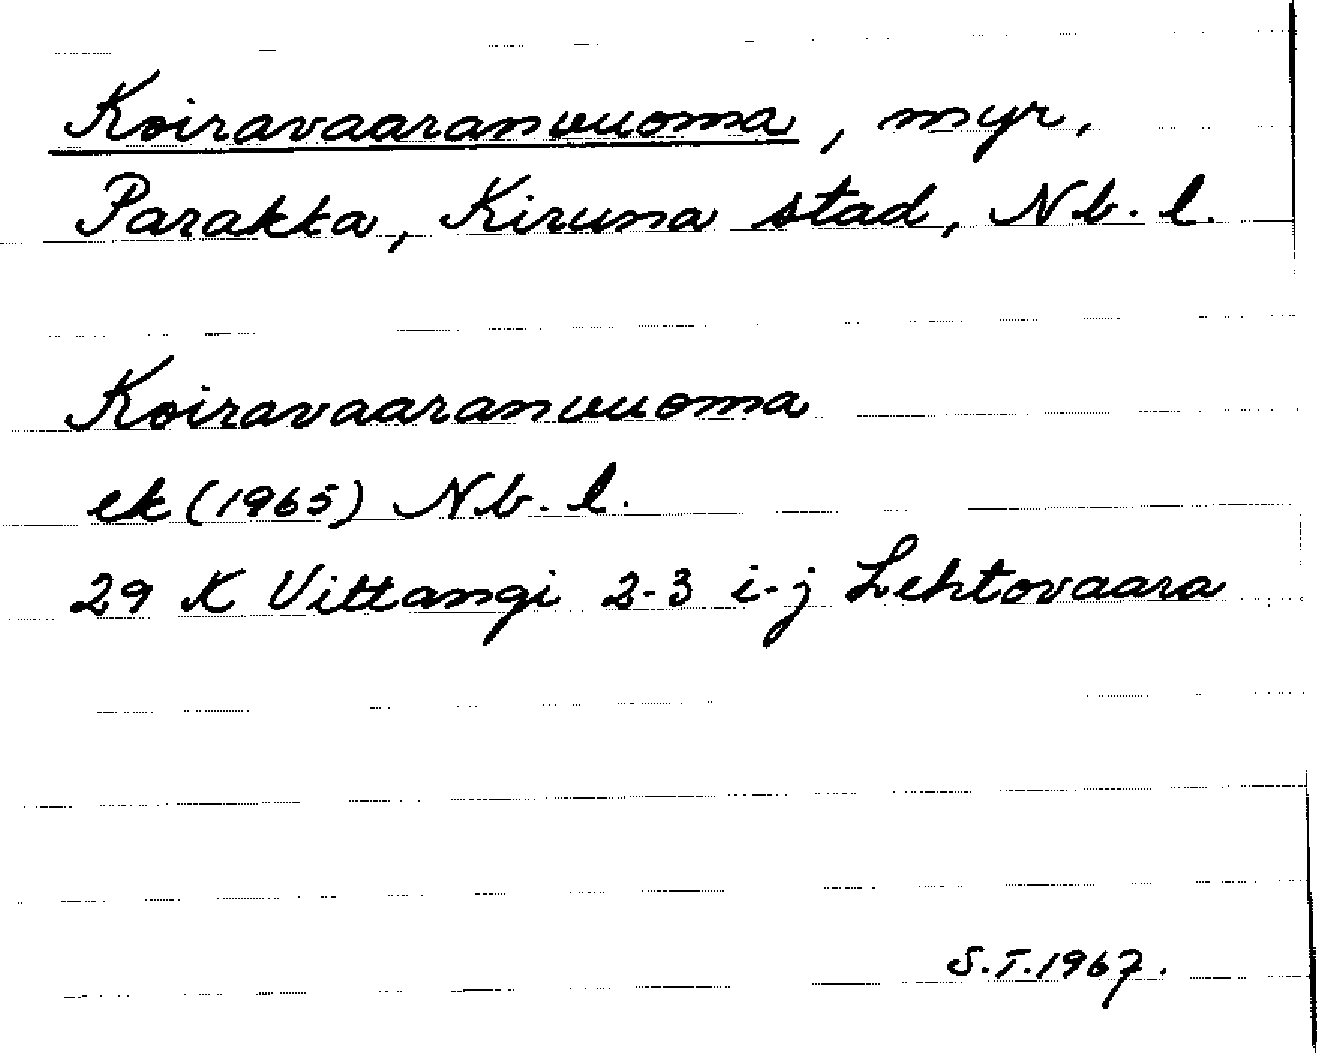 Koiravaaranvuoma, myr,
Parakka, Kiruna stad, Nb. l.
Koiravaaranvuoma
ek (1965) Nb. l.
29 K Vittangi 2-3 i-j Lehtovaara
S.T. 1967.